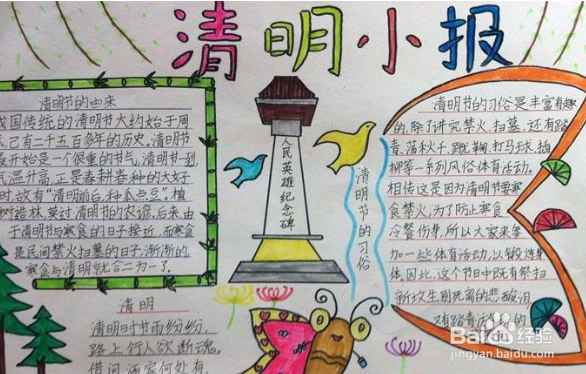 清明小报
清明节的由来
我国传统的清明节大约始于周
已有二千五百多年的历史。清明节
最开始是一个很重的节气,清明节一到
气温升高,正是春耕春种的大好
时,故有“清明前后,种瓜点豆”。植
树造林,莫过清明节的农谚。后来,由
于清明节与寒食的日子接近,而寒食
是民间禁火扫墓的日子,渐渐的
寒食与清明就合二为一了。
清明
清明时节雨纷纷,
路上行人欲断魂。
借问酒家何处有,
人民英雄纪念碑
清明节的习俗
清明节的习俗是丰富有趣
的,除了讲究禁火、扫墓,还有踏
青、荡秋千、蹴鞠、打马球、插
柳等一系列风俗体育活动。
相传这是因为清明节要寒
食禁火,为了防止寒食
冷餐伤身,所以大家来参
加一些体育活动,以锻炼身
体。因此,这个节日中既有祭扫
新坟生别死离的悲酸泪
又有踏青的
Baidu经验
jingyan.baidu.com